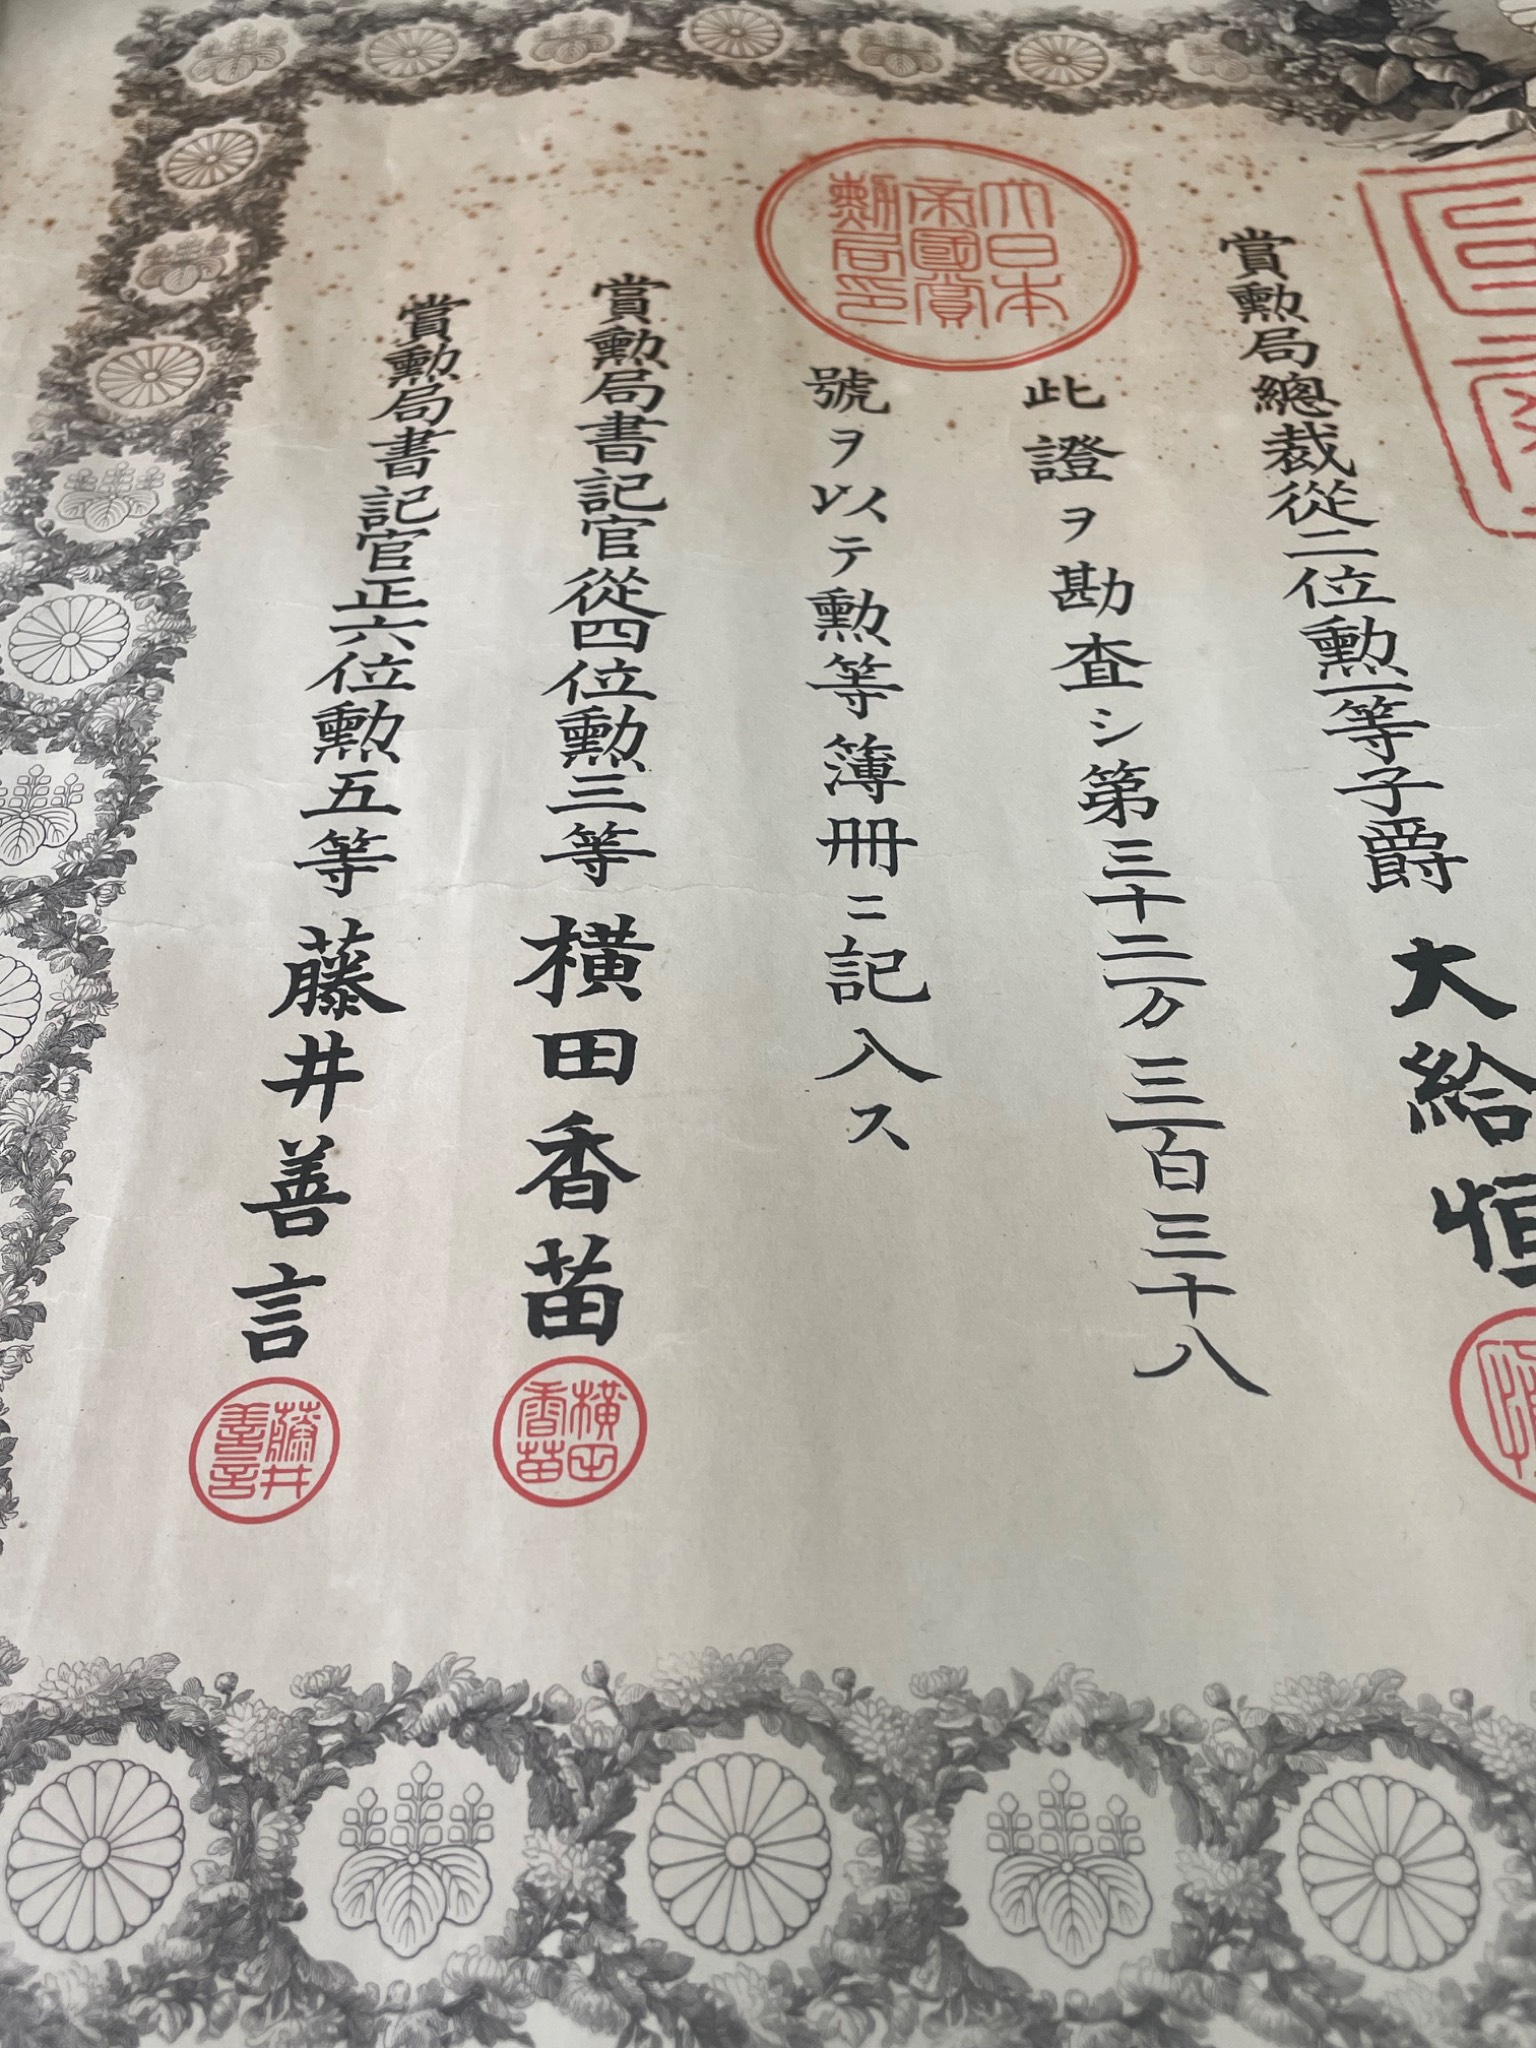 賞勲局總裁從二位勲一等子爵 大給恒
此證ヲ勘査シ第三十二万三百三十八
號ヲ以テ勲等簿冊ニ記入ス
大日本
帝國賞
勲局印
賞勲局書記官從四位勲三等 横田香苗
横田
香苗
賞勲局書記官正六位勲五等 藤井善言
藤井
善言